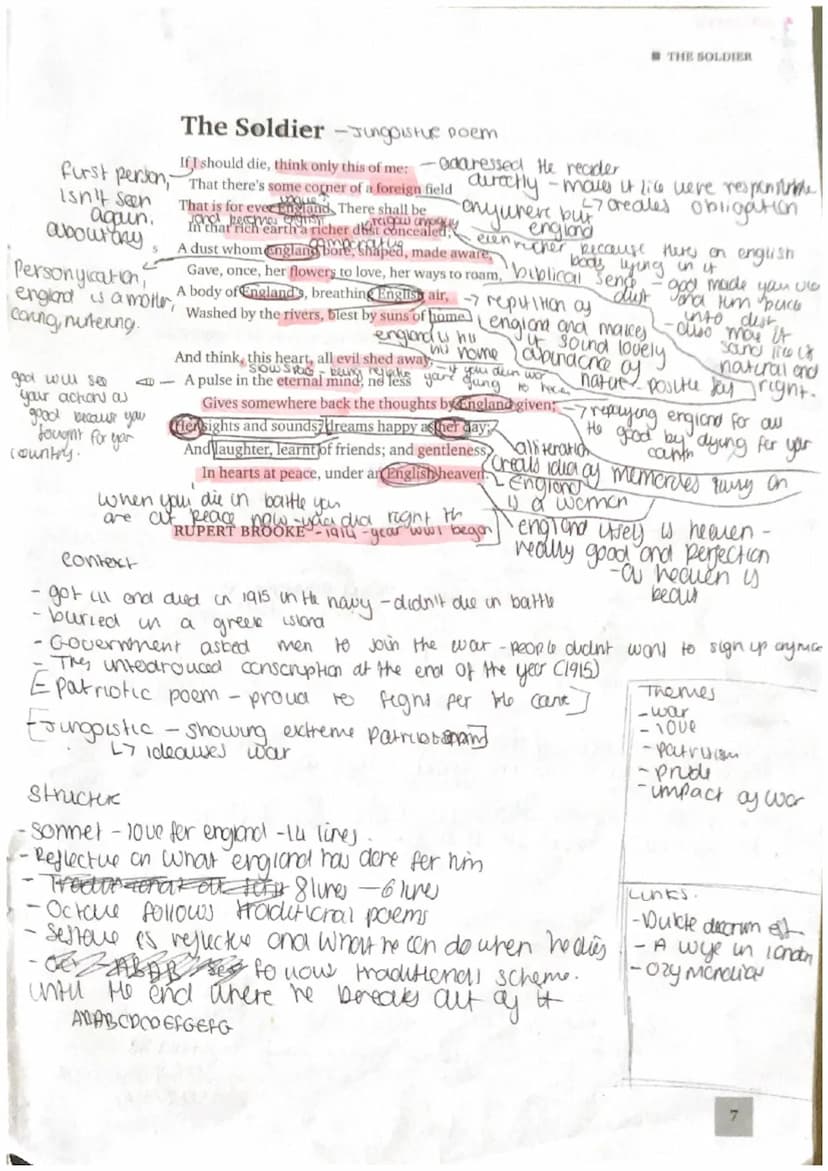 ■ THE SOLDIER
The Soldier - Jungoistic poem
If I should die, think only this of me:
That there's some corner of a foreign field
That is for ever England. There shall be
In that rich earth a richer dust concealed;
A dust whom England bore, shaped, made aware,
Gave, once, her flowers to love, her ways to roam,
A body of England's, breathing English air,
Washed by the rivers, blest by suns of home.
And think, this heart, all evil shed away,
A pulse in the eternal mind, no less
Gives somewhere back the thoughts by England given;
Her sights and sounds; dreams happy as her day;
And laughter, learnt of friends; and gentleness,
In hearts at peace, under an English heaven.
RUPERT BROOKE - 1914 - year WW1 began
first person,
isn't seen
again.
Personification,
england is a mother,
caring, nutering.
god will see
your actions as
good because you
fought for your
country.
- addressed the reader
directly - makes it like were responsible
↳ creates obligation
anywhere but
england
even richer because theres an english
body lying in it
biblical sense - god made you
dust and turn back
into dust
- also make it
sound like it
natural and
right.
→ repitition of
england and makes
it sound lovely
abundance of
nature - positive
england is his
home
→ repaying england for all
the good by dying for your
country
alliteration
creats idea of memories living on
England
is a women
england itself is heaven -
really good and perfection
- as heaven is
when you die in battle you
are at peace now - you did right th
context
- got ill and died in 1915 in the navy - didn't die in battle
- buried in a greek island
- Government asked men to join the war - people didnt want to sign up anymore
- They untroduced conscription at the end of the year (1915)
[Patriotic poem - proud to fight for the cause]
[Jungoistic - showing extreme patriotism]
↳ idealises war
Structure
- sonnet - love for england - 14 lines.
- Reflective on what england has done for him
- 8 lines - 6 lines
- Octave follows traditional poems
- sestave is reflective and what he can do when he dies
- follows traditional scheme.
until the end where he breaks out of it
ABABCDCDEFGEFG
Themes
- war
- love
- patriotism
- pride
- impact of war
Links.
- Dulce decorum est
- A wife in london
- Ozymandias
7